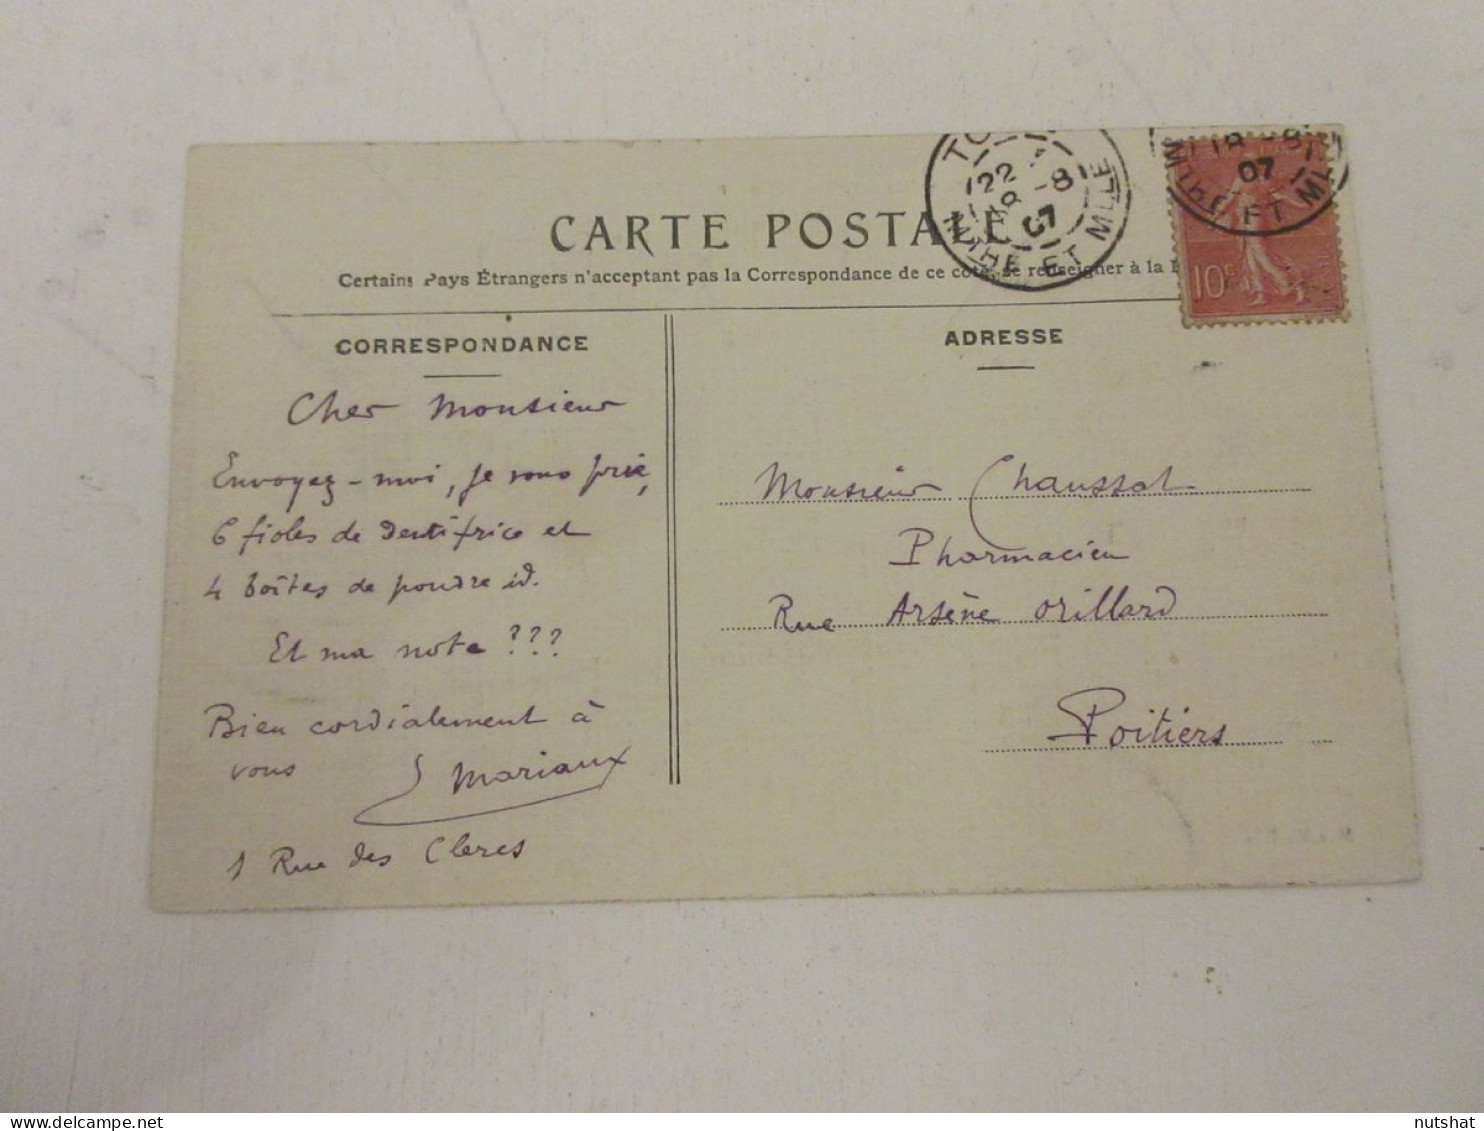 CARTE POSTALE
Certains Pays Étrangers n'acceptant pas la Correspondance de ce côté, se renseigner à la
TO
22
18 -8
07
MTHE ET MLLE
18 -8
07
MTHE ET MLLE
10c
CORRESPONDANCE
Cher Monsieur
Envoyez-moi, je vous prie,
6 fioles de dentifrice et
4 boîtes de poudre id.
Et ma note ???
Bien cordialement à
vous Mariaux
1 Rue des Cleres
ADRESSE
Monsieur Chaussat
Pharmacien
Rue Arsène Orillard
Poitiers
delcampe.net
nutshat